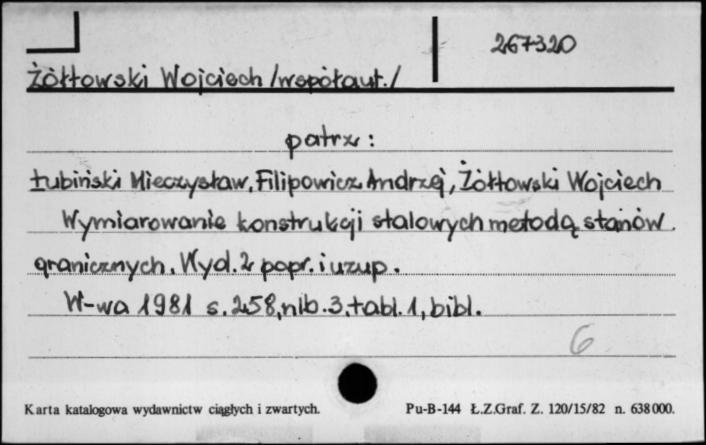 267320
Żółtowski Wojciech /współaut./
patrz:
Łubiński Mieczysław, Filipowicz Andrzej, Żółtowski Wojciech
Wymiarowanie konstrukcji stalowych metodą stanów
granicznych. Wyd. 2 popr. i uzup.
W-wa 1981 s. 258, nlb. 3, tabl. 1, bibl.
6
Karta katalogowa wydawnictw ciągłych i zwartych. Pu-B-144 Ł.Z.Graf. Z. 120/15/82 n. 638000.